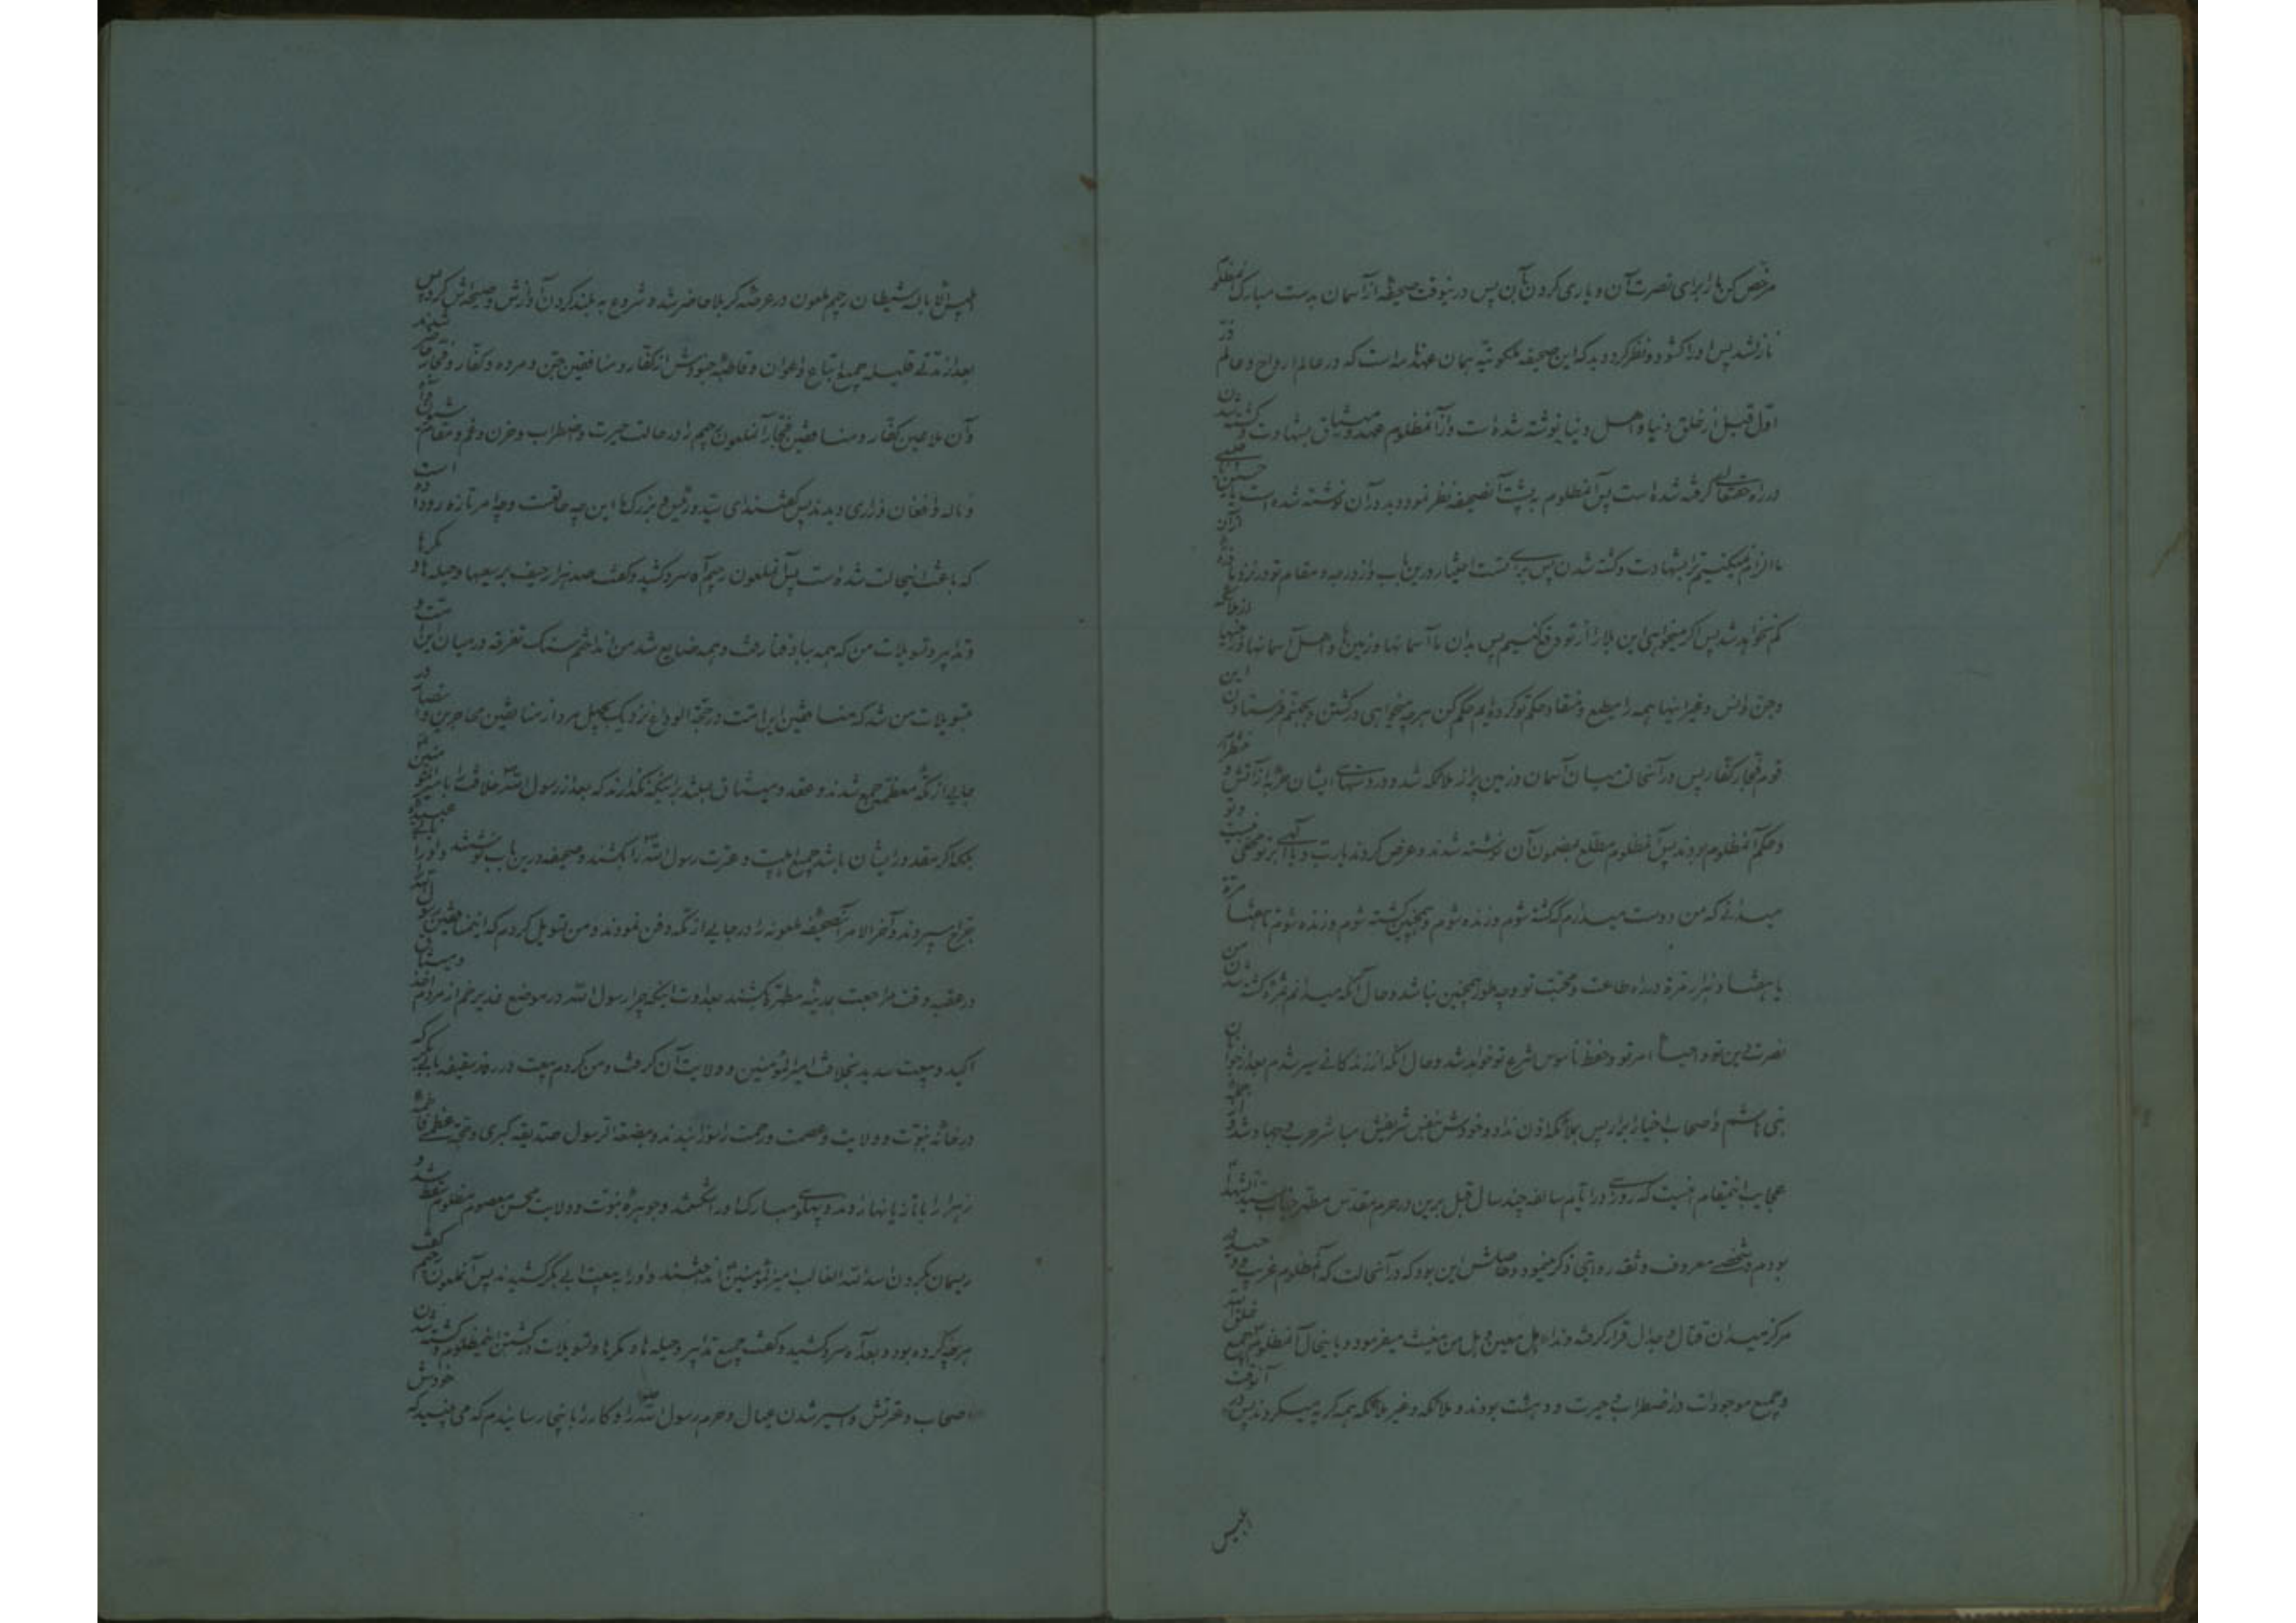 مرخص کن ما را برای نصرت آن و یاری کردن بآن پس در ینوقت صحیفهٔ از آسمان بدست مبارک آنمظلوم
نازلشد پس او را کشود و نظر کرد و دید که این صحیفه ملکوتیه همان عهدنامه است که در عالم ارواح و عالم ذر
اول قبل از خلق دنیا و اهل دنیا نوشته شده است و از آنمظلوم عهد و میثاق بشهادت و کشته شدن
در راه حقتعالی گرفته شده است پس آنمظلوم به پشت آنصحیفه نظر نمود و دید در آن نوشته شده است
ما الزام نمیکنیم ترا بشهادت و کشته شدن پس برای تست اختیار درین باب و از درجه و مقام تو در نزد ما
کم نخواهد شد پس اگر میخواهی این بلا را از تو دفع کنیم پس بدان ما آسمانها و زمین ها و اهل آسمانها و زمینها از ملائکه
و جن و انس و غیر اینها همه را مطیع و منقاد حکم تو کرده‌ایم حکم کن هر چه میخواهی در کشتن و بجهنم فرستادن این
قوم فجار کفار پس در آنحال میان آسمان و زمین پر از ملائکه شد و در دستهای ایشان حربها از آتش و منتظر
و حکم آنمظلوم بودند پس آنمظلوم مطلع بمضمون آن نوشته شدند و عرض کردند یا رب و یا الهی بر تو مخفی نیست و تو
میدانی که من دوست میدارم که کشته شوم و زنده شوم و همچنین کشته شوم و زنده شوم تا هفتاد مرتبه
یا هفتاد هزار مرتبه در راه طاعت و محبت تو و چطور همچنین نباشد و حال آنکه میدانم ثمره کشته شدن من
نصرت دین تو و احیاء امر تو و حفظ ناموس شرع تو خواهد شد و حال آنکه از زندکانی سیر شدم بعد از جوانان
بنی هاشم و اصحاب اخیار ابرار پس بملائکه اذن نداد و خودش بنفس شریفش مباشر حرب و جهاد شد و از جمله
عجایب اینمقام اینست که روزی در ایام سالفه چند سال قبل برین در حرم مقدس مطهر جناب سید الشهدا
بودم و شخصی معروف و ثقه روایتی ذکر مینمود و حاصلش این بود که در آنحالت که آنمظلوم غریب وحید در
مرکز میدان قتال و جدال قرار گرفته و ندای هل معین و هل من مغیث میفرمود و باینحال آنمظلوم جمیع خلق الله
و جمیع موجودات در اضطراب و حیرت و دهشت بودند و ملائکه و غیر ملائکه همه گریه میکردند پس در آنوقت
ابلیس
ابلیس ابالسه شیطان رجیم ملعون در عرصه کربلا حاضر شد و شروع به بلند کردن آوازش و صیحه‌اش کرد پس
بعد از مدتی قلیله جمیع اتباع و اعوان و قاطبه جنودش از کفار و منافقین جن و مرده و کفار و فجار حاضر شدند
و آن ملاعین کفار و منافقین فجار آنملعون رجیم را در حالت حیرت و اضطراب و حزن و غم و مقام
و ناله و افغان و زاری دیدند پس گفتند ای سید و رئیس و بزرگ ما این چه حالتست و چه امر تازه رو داده است
که باعث اینحالت شده است پس آنملعون رجیم آه سرد کشید و گفت صد هزار حیف بر سعیها و حیله ها و مکرها
و تدابیر و تسویلات من که همه بباد فنا رفت و همه ضایع شد من انداختم سنک تفرقه در میان این امت و
بتسویلات من شد که منافقین این امت در حجة الوداع نزدیک بچهل مرد از منافقین مهاجرین و انصار در
جایی از مکه معظمه جمع شدند و عقد و میثاق بستند بر اینکه نگذارند که بعد از رسول الله خلافت با امیرالمؤمنین
بلکه اگر مقدور ایشان باشد جمیع اهلبیت و عترت رسول الله را بکشند و صحیفه درین باب نوشتند و او را بابی عبیده
جراح سپردند و آخر الامر آنصحیفه ملعونه را در جایی از مکه دفن نمودند و من تسویل کردم که اینمنافقین رسول الله را
در عقبه وقت مراجعت بمدینه مطهره کشتند بعداوت اینکه چرا رسول الله در موضع غدیر خم از مردم اخذ و میثاق
اکید و بیعت سدید بخلافت امیرالمؤمنین و ولایت آن گرفت و من کردم بیعت در روز سقیفه بابی بکر که
در خانه نبوت و ولایت و عصمت و رحمت را سوزانیدند و بضعة الرسول صدیقه کبری و حجة عظمی فاطمه
زهرا را با تازیانها زدند و پهلوی مبارک او را شکستند و جوهرهٔ نبوت و ولایت محسن معصوم مظلوم سقط شد و
ریسمان بگردن اسد الله الغالب امیرالمؤمنین انداختند و او را به بیعت ابی بکر کشیدند پس آنملعون رجیم گفت
هر چه کرده بود و بعد آه سرد کشید و گفت جمیع تدابیر و حیله ها و مکرها و تسویلات در کشتن اینمظلوم و کشته شدن
اصحاب و عترتش و اسیر شدن عیال و حرم رسول الله را و کار را باینجا رسانیدم که می بینید که خودش